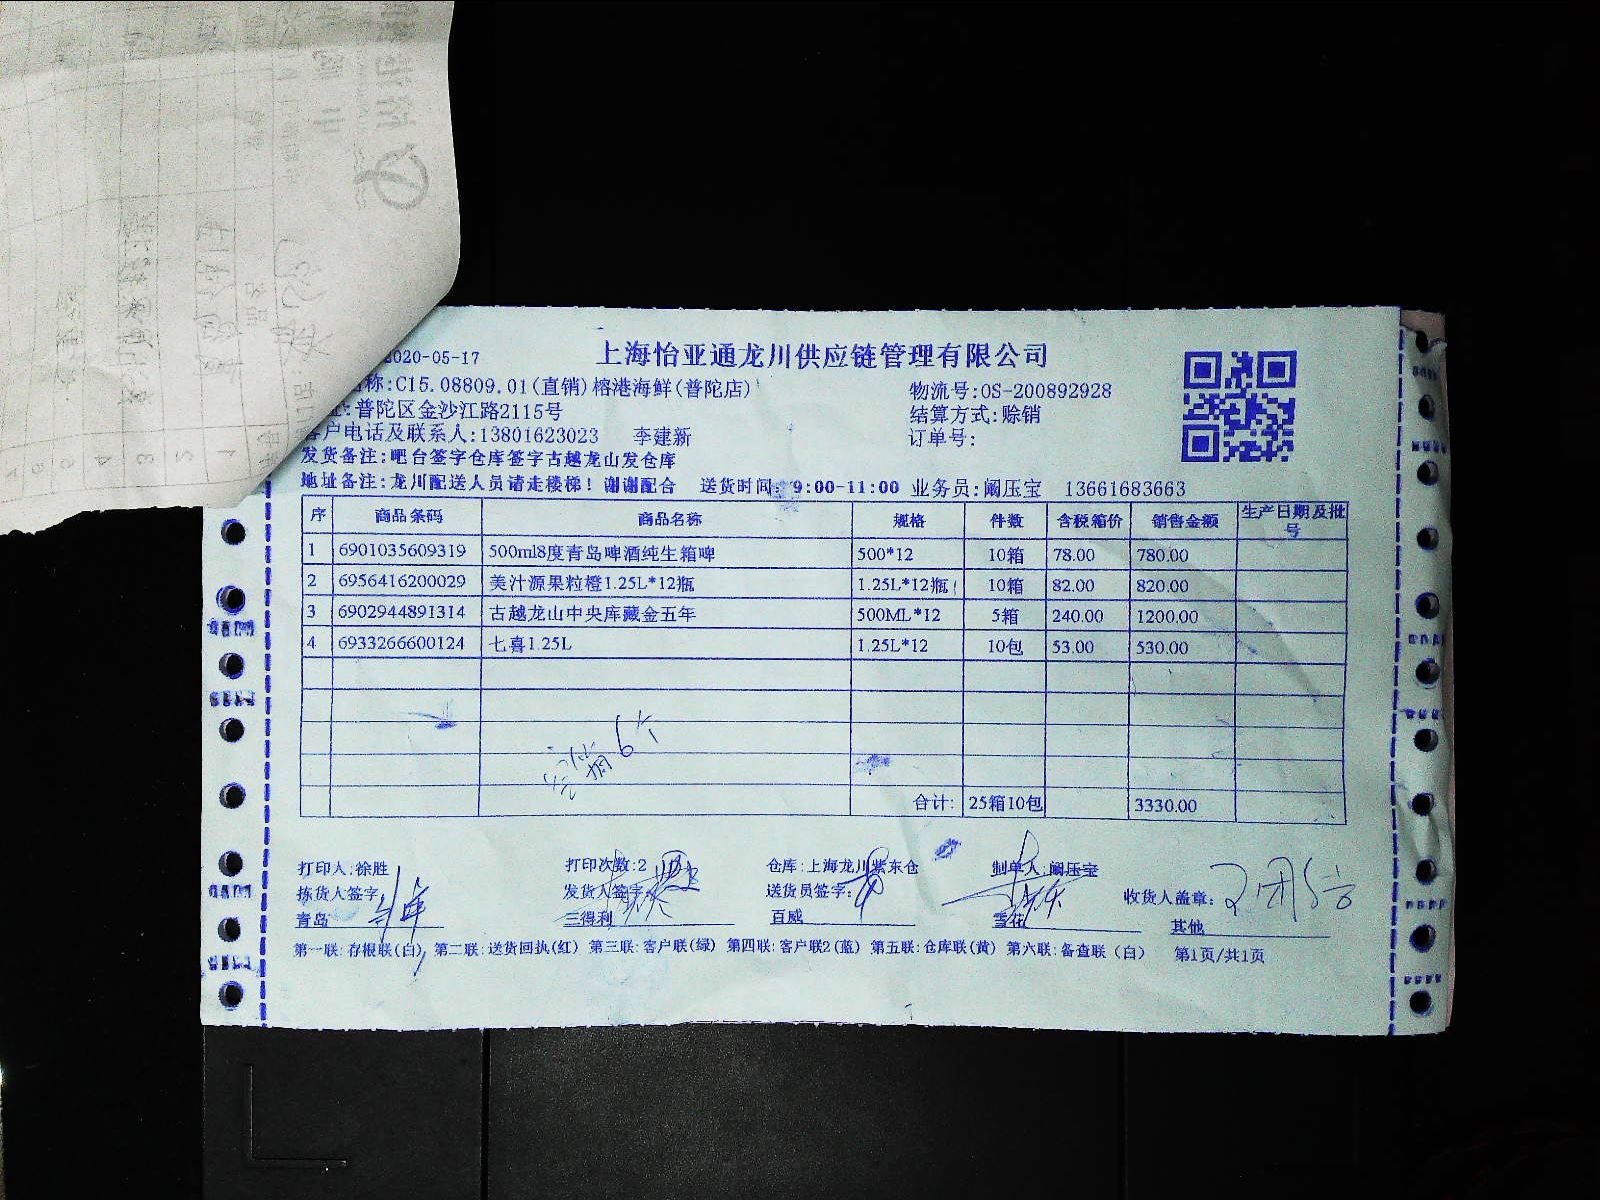 2020-05-17
上海怡亚通龙川供应链管理有限公司
称:C15.08809.01(直销)榕港海鲜(普陀店)
物流号:OS-200892928
址:普陀区金沙江路2115号
结算方式:赊销
客户电话及联系人:13801623023 李建新
订单号:
发货备注:吧台签字仓库签字古越龙山发仓库
地址备注:龙川配送人员请走楼梯!谢谢配合 送货时间:9:00-11:00 业务员:阚压宝 13661683663
序 商品条码 商品名称 规格 件数 含税箱价 销售金额 生产日期及批号
1 6901035609319 500ml8度青岛啤酒纯生箱啤 500*12 10箱 78.00 780.00
2 6956416200029 美汁源果粒橙1.25L*12瓶 1.25L*12瓶 10箱 82.00 820.00
3 6902944891314 古越龙山中央库藏金五年 500ML*12 5箱 240.00 1200.00
4 6933266600124 七喜1.25L 1.25L*12 10包 53.00 530.00
6个
合计: 25箱10包 3330.00
打印人:徐胜 打印次数:2 仓库:上海龙川紫东仓 制单人:阚压宝
拣货人签字: 发货人签字: 送货员签字: 收货人盖章:
青岛 三得利 百威 雪花 其他
第一联:存根联(白) 第二联:送货回执(红) 第三联:客户联(绿) 第四联:客户联2(蓝) 第五联:仓库联(黄) 第六联:备查联(白) 第1页/共1页